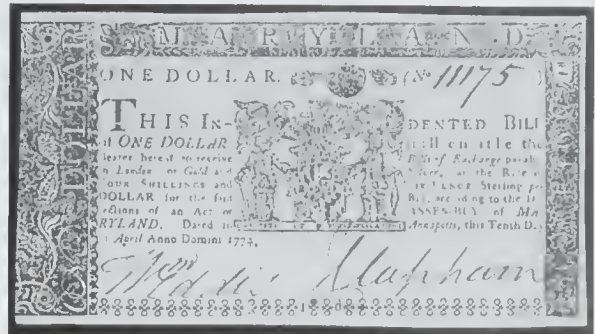 MARYLAND.
ONE DOLLAR. (No 11175)
THIS IN- DENTED BILL
of ONE DOLLAR shall entitle the
hereof to receive Bills of Exchange payable
in London or Gold and at the Rate
FOUR SHILLINGS and SIX PENCE Sterling per
DOLLAR for the said Bill, according to the
Directions of an Act of ASSEMBLY of MA-
RYLAND. Dated in Annapolis, this Tenth Day
April Anno Domini 1774.
Clapham
DOLLAR